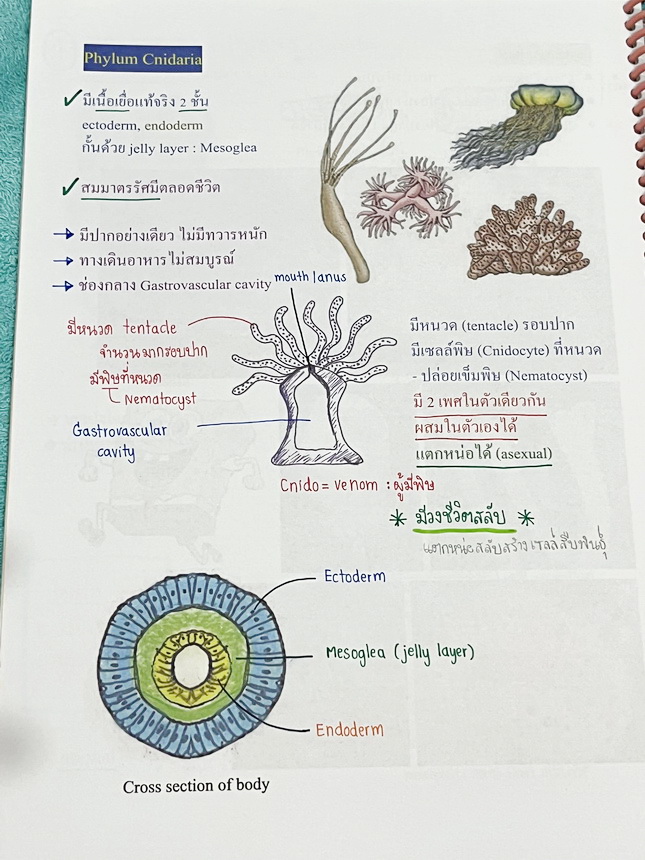 Phylum Cnidaria
มีเนื้อเยื่อแท้จริง 2 ชั้น
ectoderm, endoderm
กั้นด้วย jelly layer : Mesoglea
สมมาตรรัศมีตลอดชีวิต
มีปากอย่างเดียว ไม่มีทวารหนัก
ทางเดินอาหารไม่สมบูรณ์
ช่องกลาง Gastrovascular cavity
mouth/anus
มีหนวด tentacle
จำนวนมากรอบปาก
มีพิษที่หนวด
Nematocyst
Gastrovascular
cavity
มีหนวด (tentacle) รอบปาก
มีเซลล์พิษ (Cnidocyte) ที่หนวด
- ปล่อยเข็มพิษ (Nematocyst)
มี 2 เพศในตัวเดียวกัน
ผสมในตัวเองได้
แตกหน่อได้ (asexual)
Cnido = venom : ผู้มีพิษ
* มีวงชีวิตสลับ *
แตกหน่อสลับสร้างเซลล์สืบพันธุ์
Ectoderm
Mesoglea (jelly layer)
Endoderm
Cross section of body